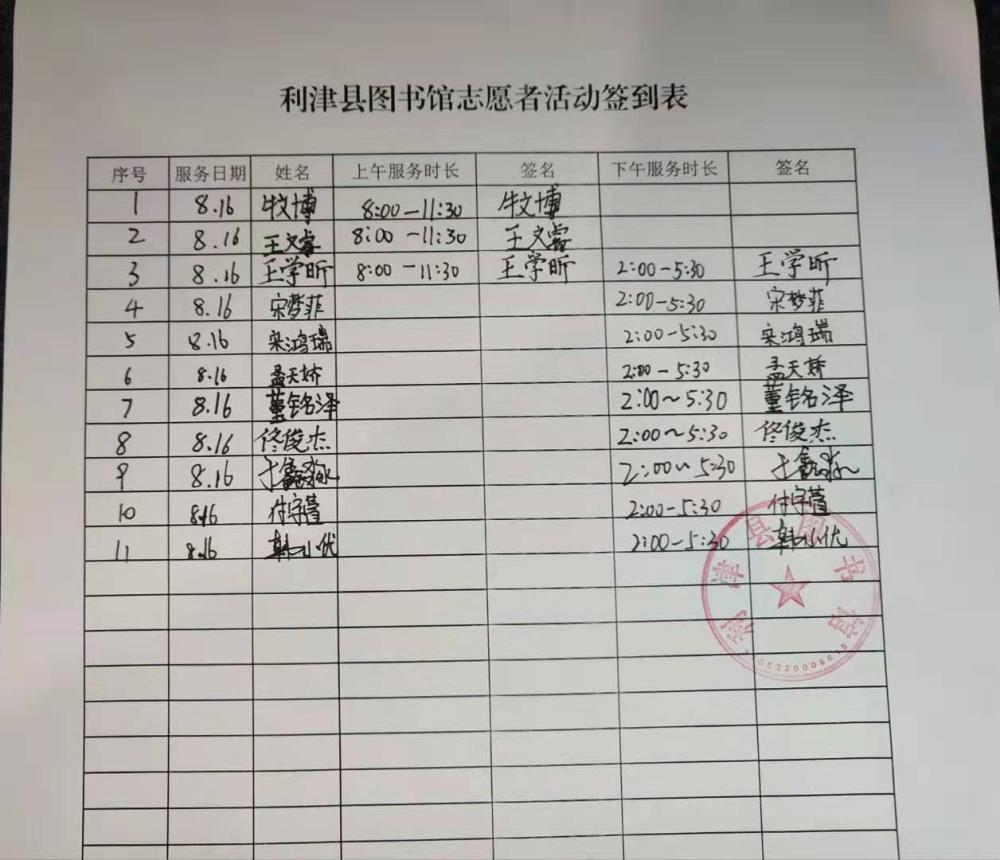 利津县图书馆志愿者活动签到表
序号 服务日期 姓名 上午服务时长 签名 下午服务时长 签名
1 8.16 牛文博 8:00-11:30 牛文博
2 8.16 王文睿 8:00-11:30 王文睿
3 8.16 王学昕 8:00-11:30 王学昕 2:00-5:30 王学昕
4 8.16 宋梦菲 2:00-5:30 宋梦菲
5 8.16 宋鸿瑞 2:00-5:30 宋鸿瑞
6 8.16 孟天娇 2:00-5:30 孟天娇
7 8.16 董铭泽 2:00~5:30 董铭泽
8 8.16 佟俊杰 2:00~5:30 佟俊杰
9 8.16 于鑫淼 2:00~5:30 于鑫淼
10 8.16 付宇萱 2:00-5:30 付宇萱
11 8.16 韩小优 2:00-5:30 韩小优
利津县图书馆